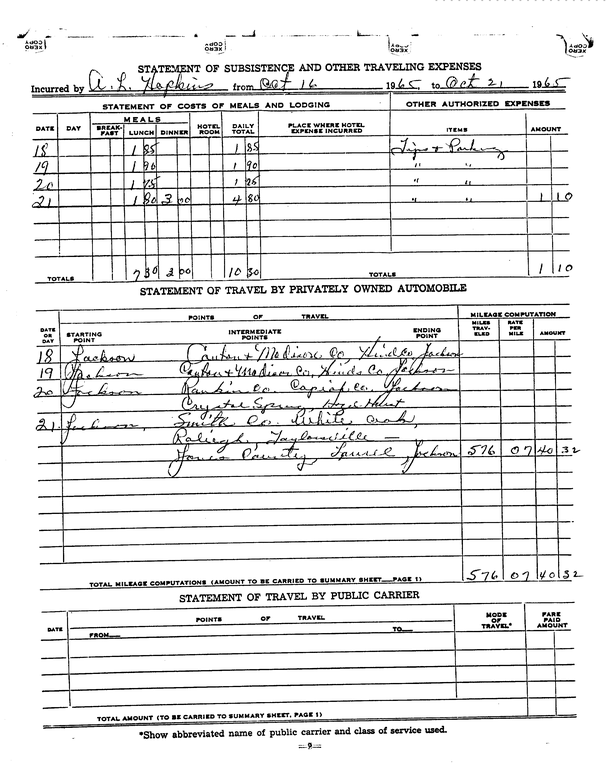 XERO COPY
XERO COPY
XERO COPY
XERO COPY
STATEMENT OF SUBSISTENCE AND OTHER TRAVELING EXPENSES
Incurred by A. L. Hopkins from Oct 16 1965 to Oct 21 1965
STATEMENT OF COSTS OF MEALS AND LODGING OTHER AUTHORIZED EXPENSES
DATE DAY MEALS BREAK-FAST LUNCH DINNER HOTEL ROOM DAILY TOTAL PLACE WHERE HOTEL EXPENSE INCURRED ITEMS AMOUNT
18 1 85 1 85 Tips & Parking
19 1 90 1 90 " "
20 1 75 1 75 " "
21 1 80 3 00 4 80 " " 1 10
TOTALS 7 30 3 00 10 30 TOTALS 1 10
STATEMENT OF TRAVEL BY PRIVATELY OWNED AUTOMOBILE
POINTS OF TRAVEL MILEAGE COMPUTATION
DATE OR DAY STARTING POINT INTERMEDIATE POINTS ENDING POINT MILES TRAV-ELED RATE PER MILE AMOUNT
18 Jackson Canton & Madison Co, Hinds Co Jackson
19 Jackson Canton & Madison Co, Hinds Co, Jackson
20 Jackson Rankin Co. Copiah Co. Jackson
Crystal Springs, Hazlehurst
21 Jackson, Smith Co. White Oak,
Raleigh, Taylorsville —
Jones County, Laurel, Jackson 576 07 40 32
TOTAL MILEAGE COMPUTATIONS (AMOUNT TO BE CARRIED TO SUMMARY SHEET PAGE 1) 576 07 40 32
STATEMENT OF TRAVEL BY PUBLIC CARRIER
DATE POINTS OF TRAVEL FROM TO MODE OF TRAVEL* FARE PAID AMOUNT
TOTAL AMOUNT (TO BE CARRIED TO SUMMARY SHEET, PAGE 1)
*Show abbreviated name of public carrier and class of service used.
—9—